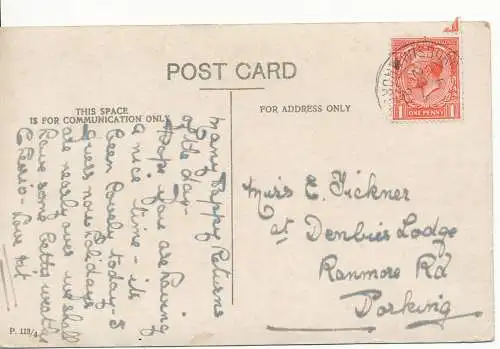 POST CARD
THIS SPACE
IS FOR COMMUNICATION ONLY
FOR ADDRESS ONLY
ONE PENNY
1 1
Many Happy Returns
of the day -
Hope you are having
a nice time - its
been lovely today - I
guess now holidays
are nearly over we shall
have some better weather
Cheerio - love
Miss E. Tickner
at Denbies Lodge
Ranmore Rd
Dorking
P. 113/4